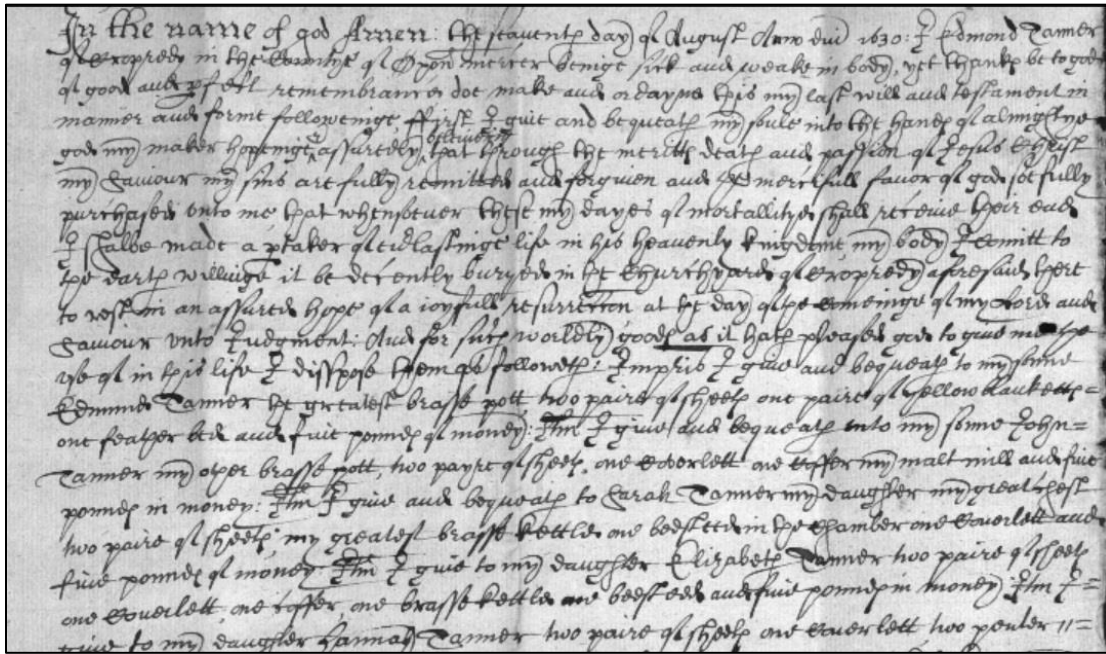 In the name of god Amen: the seaventh day of August Anno dni 1630: I Edmond Tanner
of Cropredy in the Countye of Oxon mercer beinge sick and weake in body, yet thankes be to god
of good and pfect remembrance doe make and ordayne this my last will and testament in
manner and forme followeinge, ffirst I give and bequeath my soule into the handes of almightye
god my maker hopeinge assuredly that through the meritts death and passion of Jesus Christ
my Saviour my sins are fully remitted and forgiven and mercifull favor of god soe fully
purchased unto me that whensoever these my dayes of mortallitye shall receive their end
I shalbe made a ptaker of evlastinge life in his heavenly kingdome my body I Comitt to
the earth willinge it be decently buryed in the Churchyard of Cropredy aforesaid there
to rest in an assured hope of a ioyfull resurrection at the day of the comeinge of my Lord and
Saviour unto Judgment: And for such worldly goodes as it hath pleased god to give me the
use of in this life I disspose them as followeth: Impris I give and bequeath to my sonne
Edmund Tanner the greatest brasse pott two paire of sheets one paire of yellow blanketts =
one feather bed and five poundes of money: Itm I give and bequeath unto my sonne John =
Tanner my other brasse pott, two payre of sheets, one Coverlett one Coffer my malt mill and five
poundes in money: Itm I give and bequeath to Sarah Tanner my daughter my great chest
two paire of sheets my greatest brasse kettle one beesteed in the Chamber one Coverlett and
five poundes of money Itm I give to my daughter Elizabeth Tanner two paire of sheets
one Coverlett one coffer one brasse kettle one beesteed and five poundes in money: Itm I =
give to my daughter Hannah Tanner two paire of sheets one Coverlett two pewter